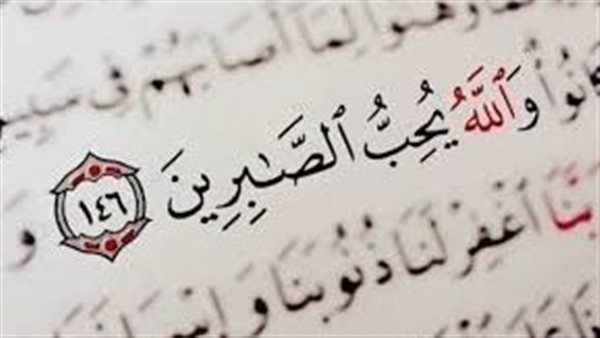 لِمَآ أَصَابَهُمْ فِى سَبِيلِ
كَانُوا۟ ۗ وَٱللَّهُ يُحِبُّ ٱلصَّـٰبِرِينَ ١٤٦ وَ
بَّنَا ٱغْفِرْ لَنَا ذُنُوبَنَا وَإِسْرَافَنَا